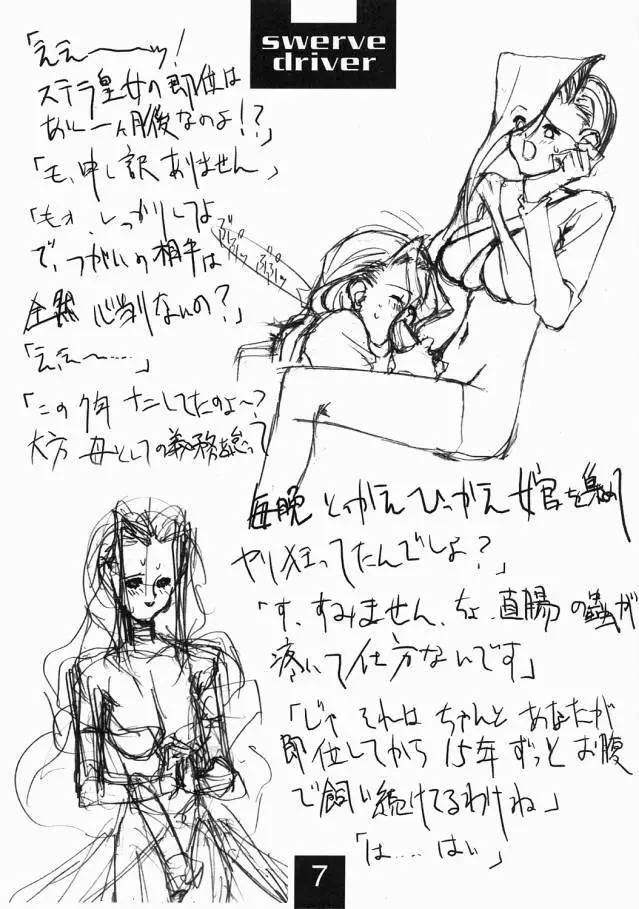 swerve
driver
「ええ———ッ!
ステラ皇女の即位は
あと一ヶ月後なのよ!?」
「も、申し訳ありません」
「もォ、しっかりしてよ
で、つがいの相手は
全然心当りないの?」
「ええ〜……」
「この7年ナニしてたのよ〜?
大方 母としての義務を怠って
毎晩 とっかえひっかえ女官を集め
ヤリ狂ってたんでしょ?」
「す、すみません、ちょ、直腸の蟲が
疼いて仕方ないです」
「じゃ それは ちゃんと あなたが
即位してから 15年 ずっと お腹
で飼い続けてるわけね」
「は……はい」
7